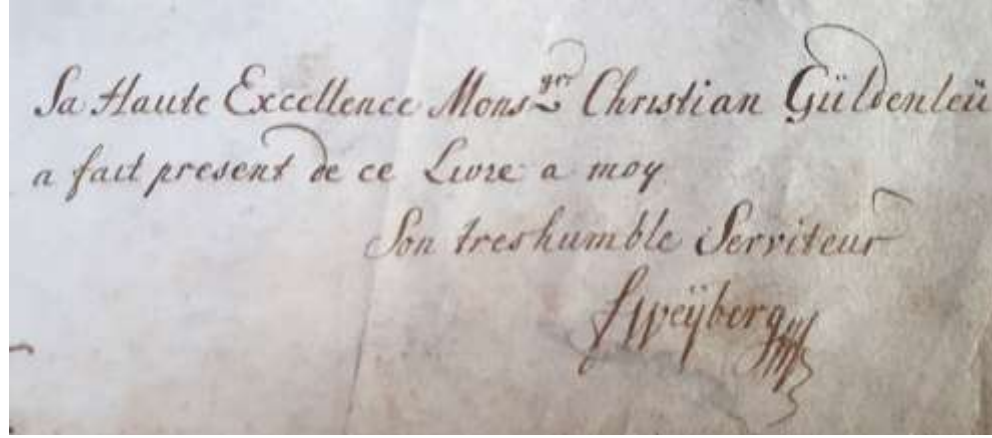 Sa Haute Excellence Monsgr Christian Güldenleü
a fait present de ce Livre a moy
Son treshumble Serviteur
Weÿberg